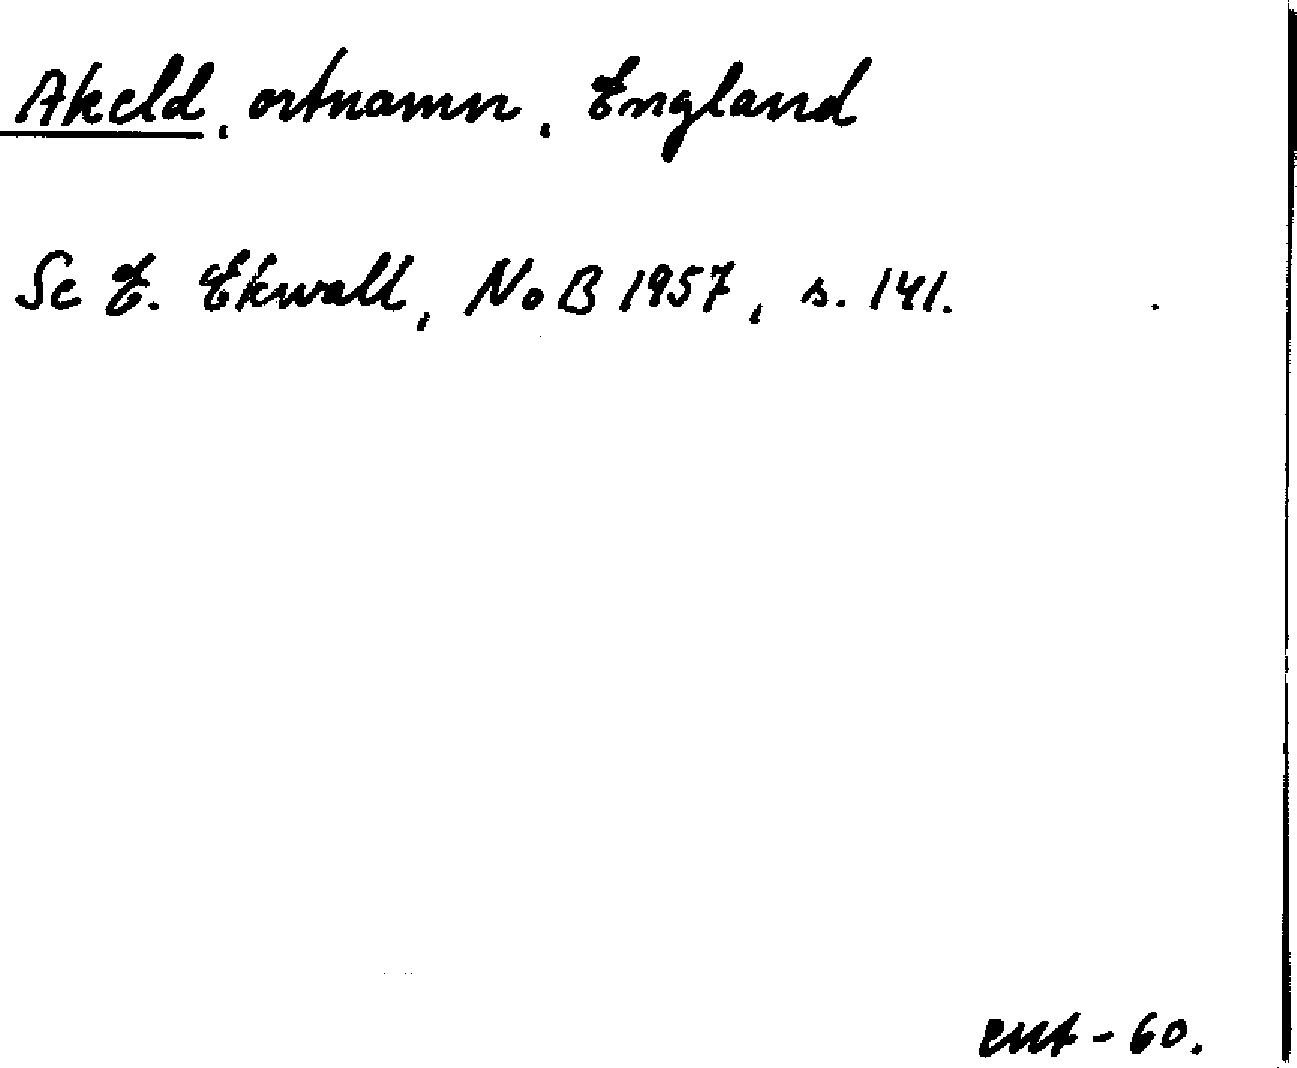 Akeld, ortnamn, England
Se E. Ekwall, NoB 1957, s. 141.
-60.